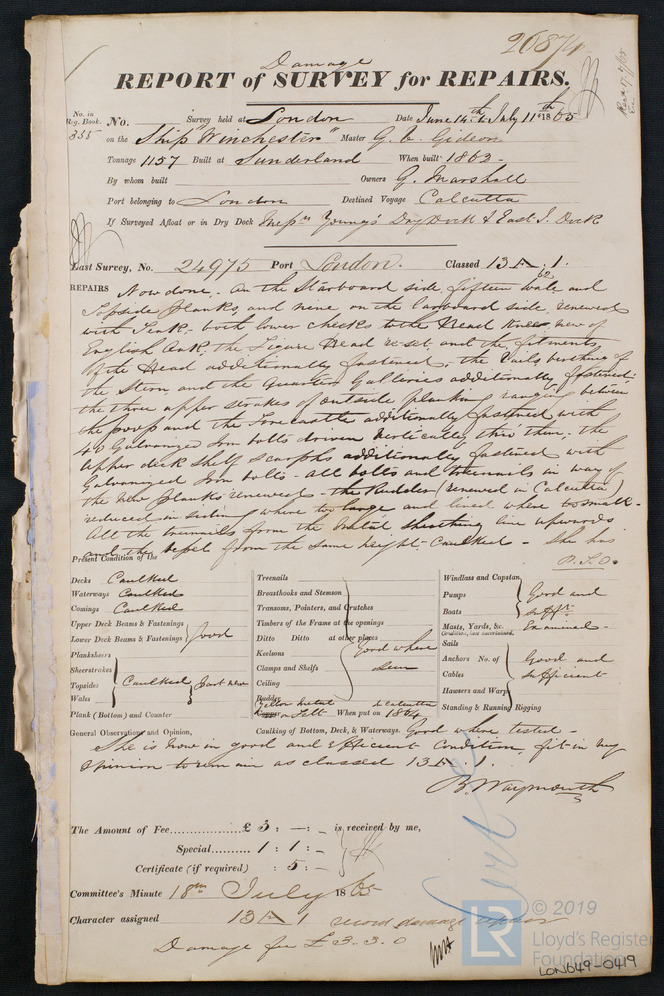 20874
Damage
REPORT of SURVEY for REPAIRS.
No. in Reg. Book. 355 No. Survey held at London Date June 14th to July 11th 1865
on the Ship "Winchester" Master G. C. Gideon
Tonnage 1157 Built at Sunderland When built 1863
By whom built Owners G. Marshall
Port belonging to London Destined Voyage Calcutta
If Surveyed Afloat or in Dry Dock Messrs Young's Dry Dock & East I. Dock
Last Survey, No. 24975 Port London. Classed 13 A 1.
REPAIRS Now done. On the Starboard side, fifteen wale and
Topside planks, and nine on the larboard side, renewed
with Teak, both lower cheeks to the Head Knee, new of
English Oak, the Figure Head re-set and the fitments
of the Head additionally fastened, the of
the Stern and the Quarter Galleries additionally fastened.
the three upper strakes of outside planking ranging between
the poop and the Forecastle additionally fastened with
40 Galvanized Iron bolts driven vertically thro' them; the
upper deck shelf scarphs additionally fastened with
Galvanized Iron bolts - All bolts and treenails in way of
the new planks renewed - the Rudder (renewed in Calcutta)
reduced in where too large and lined where too small -
All the treenails from the metal sheathing line upwards
and the from the same height - Caulked - She has
P.T.O.
Present Condition of the
Decks Caulked
Waterways Caulked
Comings Caulked
Upper Deck Beams & Fastenings
Lower Deck Beams & Fastenings Good
Planksheers
Sheerstrakes
Topsides Caulked Part new
Wales
Plank (Bottom) and Counter
Treenails
Breasthooks and Stemson
Transoms, Pointers, and Crutches
Timbers of the Frame at the openings
Ditto Ditto at other places
Keelsons Good where
Clamps and Shelfs seen
Ceiling
Rudder
Yellow Metal Calcutta
Copper on Felt When put on 1864
Caulking of Bottom, Deck, & Waterways. Good where tested -
Windlass and Capstan
Pumps Good and
Boats Sufft.
Masts, Yards, &c. Examined -
Condition, how ascertained.
Sails
Anchors No. of Good and
Cables sufficient
Hawsers and Warps
Standing & Running Rigging
General Observations and Opinion,
She is now in good and efficient Condition, fit in my
opinion to remain as classed 13 A 1.
B. Waymouth
The Amount of Fee £ 5 : — : - is received by me,
Special 1 : 1 : -
Certificate (if required) : 5 : -
Committee's Minute 18th July 1865
Character assigned 13 A 1 record damage repairs
Damage fee £3.3.0
Cert
© 2019
LR
Lloyd's Register
Foundation
LON649-0419